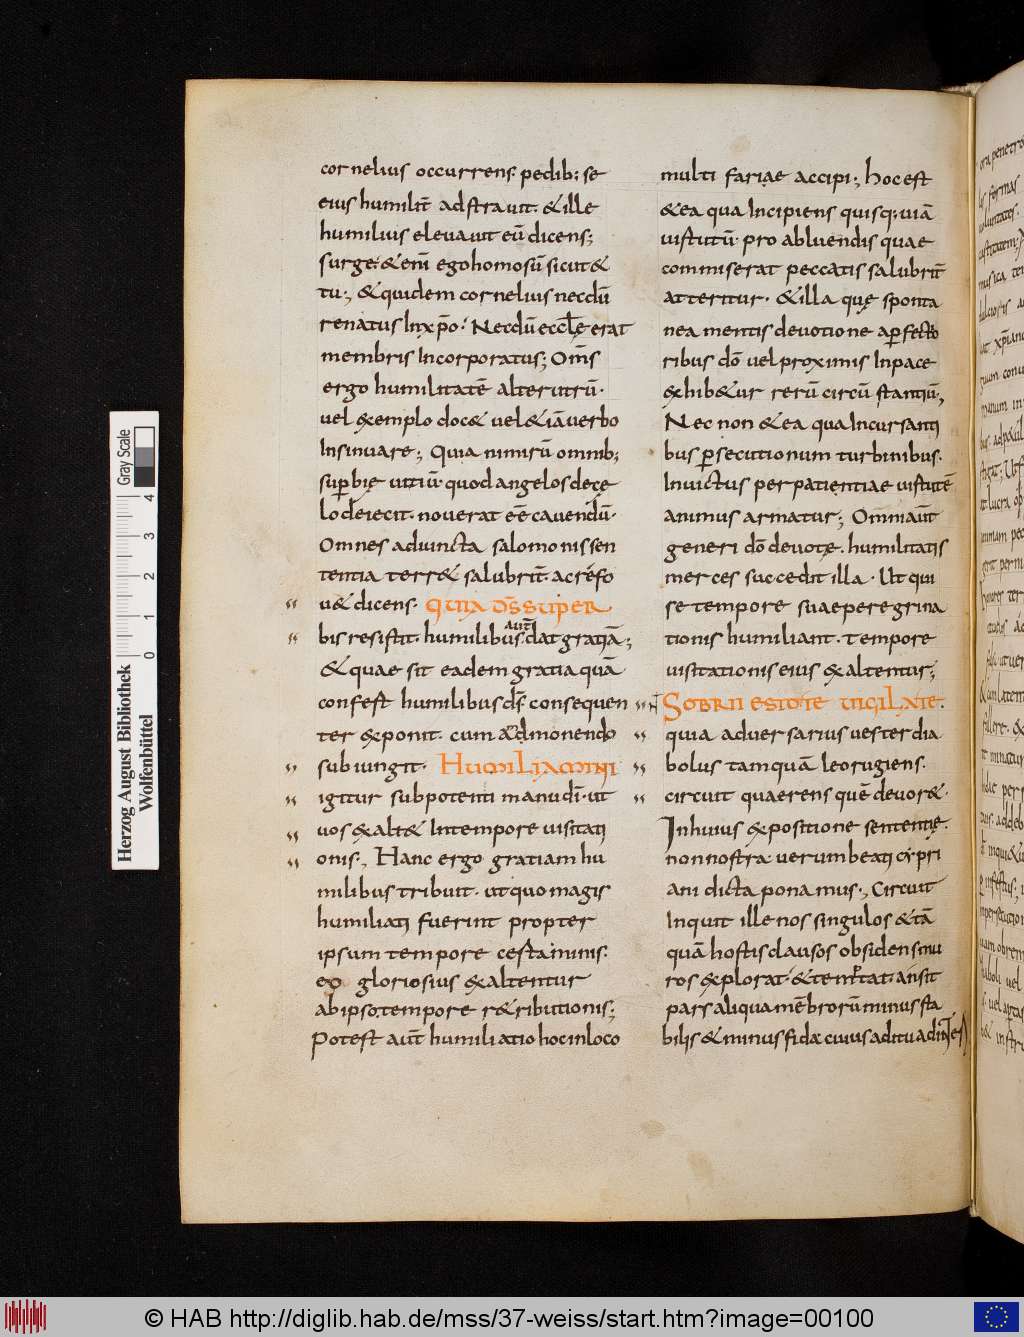 cornelius occurrens pedib; se
eius humilit̄ adstravit. &ille
humilius elevavit eū dicens;
surge. &en̄i ego homo sū sicut&
tu; &quidem cornelius necdū
renatus Inxp̄o. Necdū eccl̄ę erat
membris Incorporatus; Om̄s
ergo humilitatē alterutrū.
vel exemplo doc& vel&iā verbo
Insinuare; Quia nimirū omnib;
sup̱bię vitiū. quod angelos de cę
lo deiecit. noverat eē cavendū.
Omnes adiuncta salomonis sen
tentia terr& salubrit̄. ac refo
v& dicens. QUIA D̄S SUPER
bis resistit. humilibus aūt dat gratiā;
&quae sit eadem gratia quā
confest humilibus d̄s consequen
ter exponit. cum admonendo
subiungit. HUMILIAMINI
igitur sub potenti manu d̄i. ut
vos exalt& Intempore visitati
onis; Hanc ergo gratiam hu
milibus tribuit. ut quo magis
humiliati fuerint propter
ipsum tempore certaminis.
eo gloriosius exaltentur
ab ipso tempore r&ributionis;
Potest aūt humiliatio hoc inloco
multi fariae accipi; hoc est
&ea qua Incipiens quisq; viā
virtutū. pro abluendis quae
commiserat peccatis salubrit̄
atteritur. &illa quę sponta
nea mentis devotione a p̱fecto
ribus dō vel proximis Inpace
exhib&ur rerū circū stantiū;
Nec non &ea qua Incursanti
bus p̱secutionum turbinibus.
Invictus per patientiae virtutē
animus armatur; Omni aūt
generi dō devotę humilitatis
merces succedit illa. Ut qui
se tempore suae peregrina
tionis humiliant. tempore
visitationis eius exaltentur;
SOBRII ESTOTE VIGILATE.
quia adversarius vester dia
bolus tamquā leo rugiens.
circuit quaerens quē devor&.
In huius expositione sententię.
non nostra verum beati cypri
ani dicta ponamus; Circuit
Inquit ille nos singulos &tā
quā hostis clausos obsidens mu
ros explorat. &temptat. an sit
pars aliqua mēbrorū minus sta
bilis &minus fida cuius aditu ad inte
Herzog August Bibliothek
Wolfenbüttel
Gray Scale
0 1 2 3 4
© HAB http://diglib.hab.de/mss/37-weiss/start.htm?image=00100